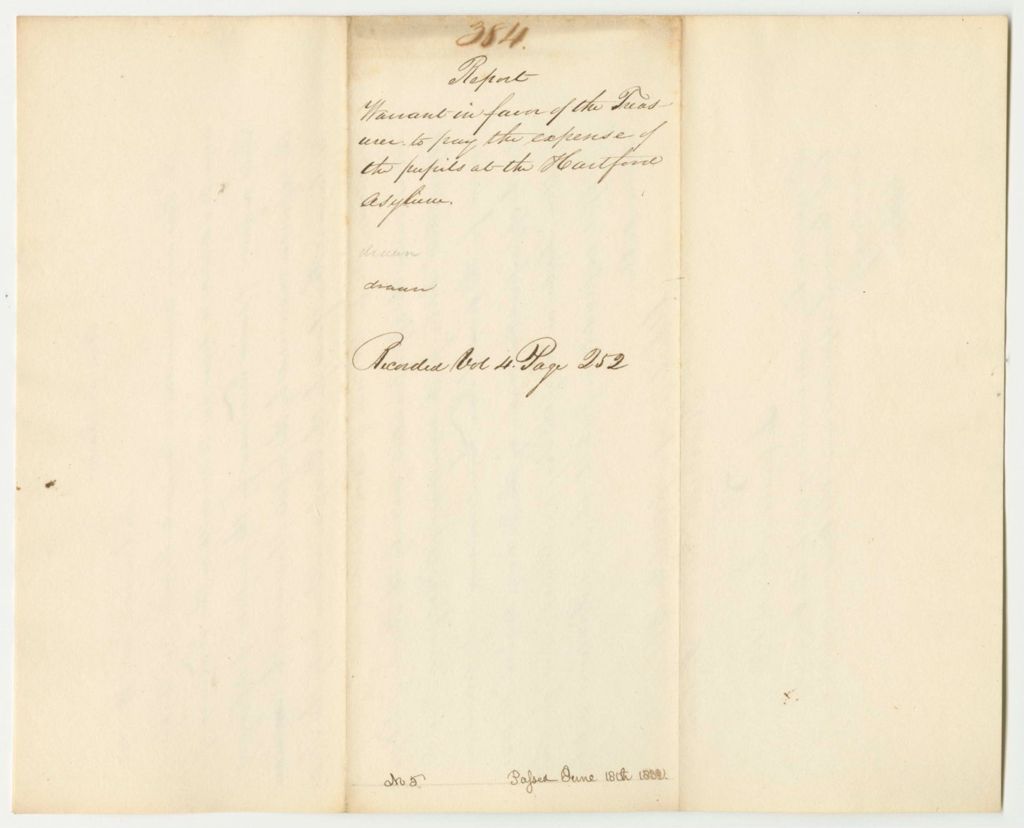 384.
Report
Warrant in favor of the Treas-
urer to pay the expense of
the pupils at the Hartford
Asylum.
drawn
drawn
Recorded Vol 4. Page 252
No 5.
Passed June 18th